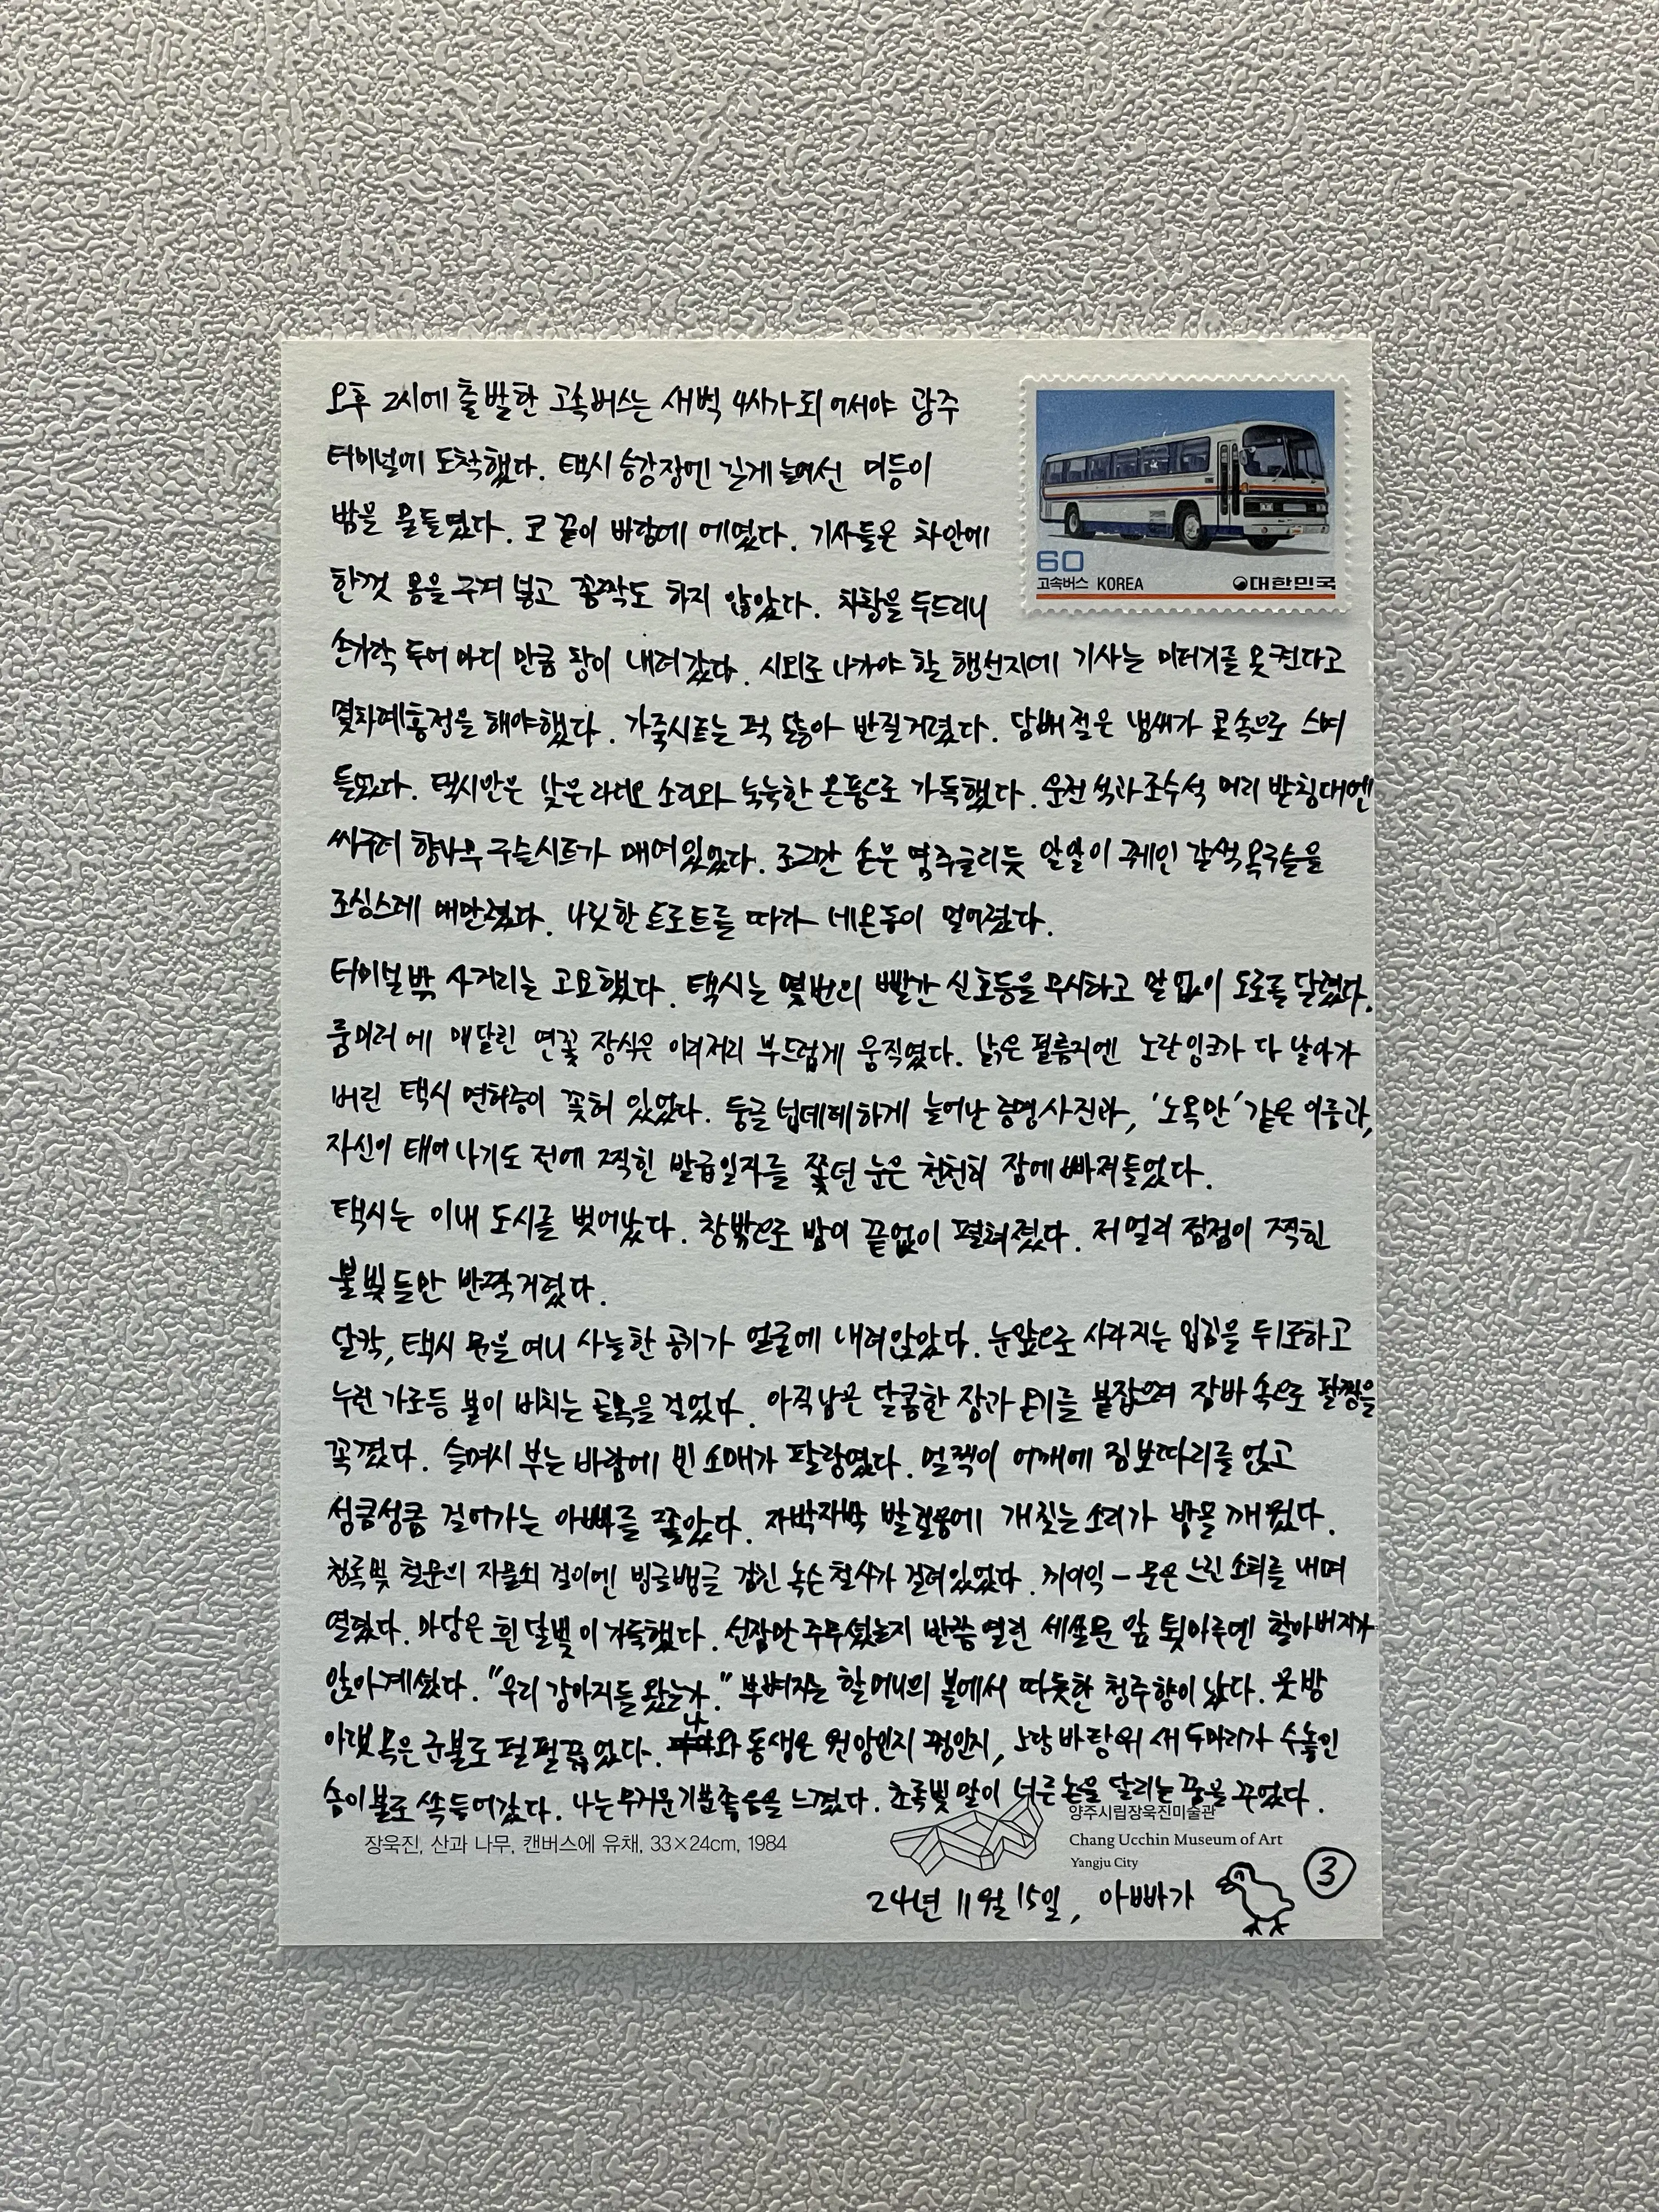 오후 2시에 출발한 고속버스는 새벽 4시가 되어서야 광주
터미널에 도착했다. 택시 승강장엔 길게 늘어선 머등이
밤을 물들였다. 코 끝이 바람에 에였다. 기사들은 차안에
한껏 몸을 구겨 넣고 꼼짝도 하지 않았다. 차창을 두드리니
손가락 두어 마디 만큼 창이 내려갔다. 시외로 나가야 할 행선지에 기사는 미터기를 못켠다고
몇차례 흥정을 해야했다. 가죽시트는 퍽 닳아 반질거렸다. 담배 절은 냄새가 콧속으로 스며
들었다. 택시안은 낮은 라디오 소리와 눅눅한 온풍으로 가득했다. 운전석과 조수석 머리 받침대엔
싸구려 향나무 구슬시트가 매여있었다. 조그만 손은 염주굴리듯 알알이 꿰인 갈색 옥구슬을
조심스레 매만졌다. 나릿한 트로트를 따라 네온등이 멀어졌다.
터미널 밖 사거리는 고요했다. 택시는 몇번의 빨간 신호등을 무시하고 말 없이 도로를 달렸다.
룸미러에 매달린 연꽃 장식은 이리저리 부드럽게 움직였다. 낡은 필름지엔 노란잉크가 다 날아가
버린 택시 면허증이 꽂혀 있었다. 둥글 넙데데하게 늘어난 증명사진과, '노옥만' 같은 이름과,
자신이 태어나기도 전에 찍힌 발급일자를 쫓던 눈은 천천히 잠에 빠져들었다.
택시는 이내 도시를 벗어났다. 창밖으로 밤이 끝없이 펼쳐졌다. 저 멀리 점점이 찍힌
불빛들만 반짝거렸다.
달칵, 택시 문을 여니 사늘한 공기가 얼굴에 내려앉았다. 눈앞으로 사라지는 입김을 뒤로하고
누런 가로등 불이 비치는 골목을 걸었다. 아직 남은 달콤한 잠과 온기를 붙잡으려 잠바 속으로 팔짱을
꼭 꼈다. 슬며시 부는 바람에 빈 소매가 팔랑였다. 멀찍이 어깨에 짐보따리를 얹고
성큼성큼 걸어가는 아빠를 쫓았다. 자박자박 발걸음에 개짖는 소리가 밤을 깨웠다.
청록빛 철문의 자물쇠 걸이엔 빙글뱅글 감긴 녹슨 철사가 걸려있었다. 끼이익 - 문은 느린 소리를 내며
열렸다. 마당은 흰 달빛이 가득했다. 선잠만 주무셨는지 반쯤 열린 세살문 앞 툇마루엔 할아버지가
앉아계셨다. "우리 강아지들 왔는가." 부벼지는 할머니의 볼에서 따듯한 청주향이 났다. 웃방
아랫목은 군불로 펄펄끓었다. 나와 동생은 원앙인지 꿩인지, 노랑 바탕위 새 두마리가 수놓인
솜이불로 쏙 들어갔다. 나는 무거운 기분좋음을 느꼈다. 초록빛 말이 너른 논을 달리는 꿈을 꾸었다.
장욱진, 산과 나무, 캔버스에 유채, 33×24cm, 1984
양주시립장욱진미술관
Chang Ucchin Museum of Art
Yangju City
24년 11월 15일, 아빠가
③
60
고속버스 KOREA
대한민국